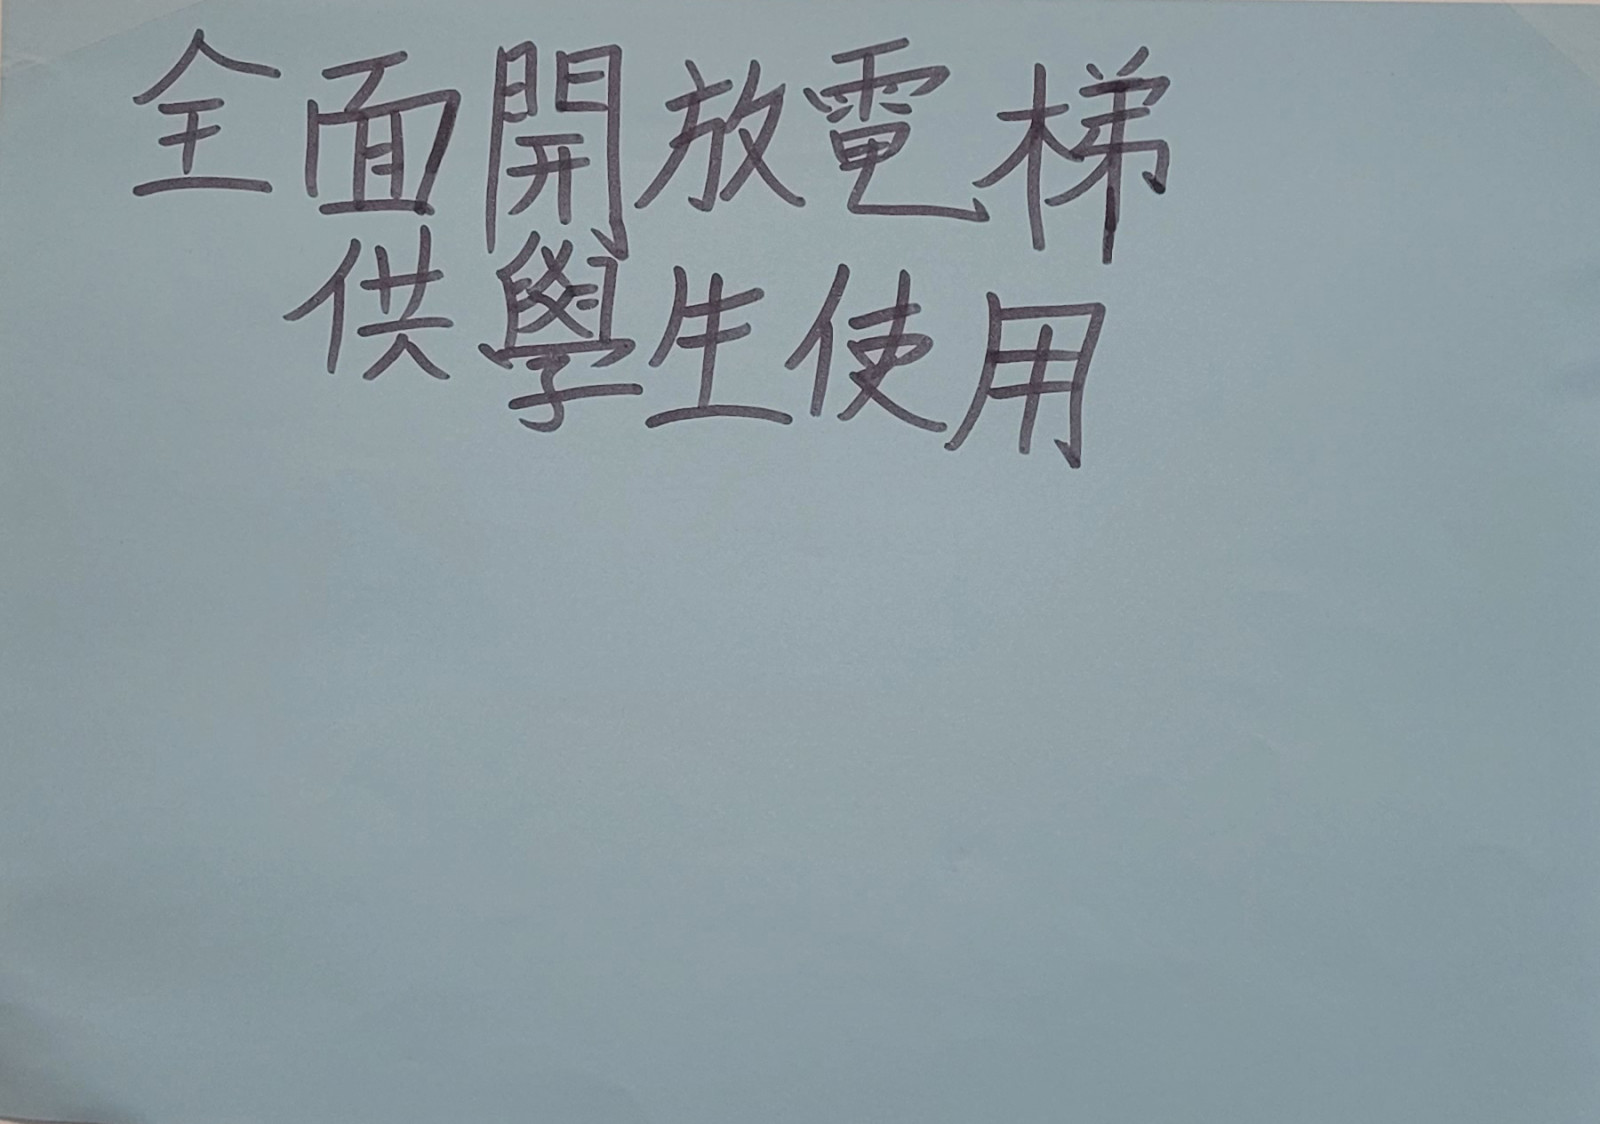 全面開放電梯
供學生使用